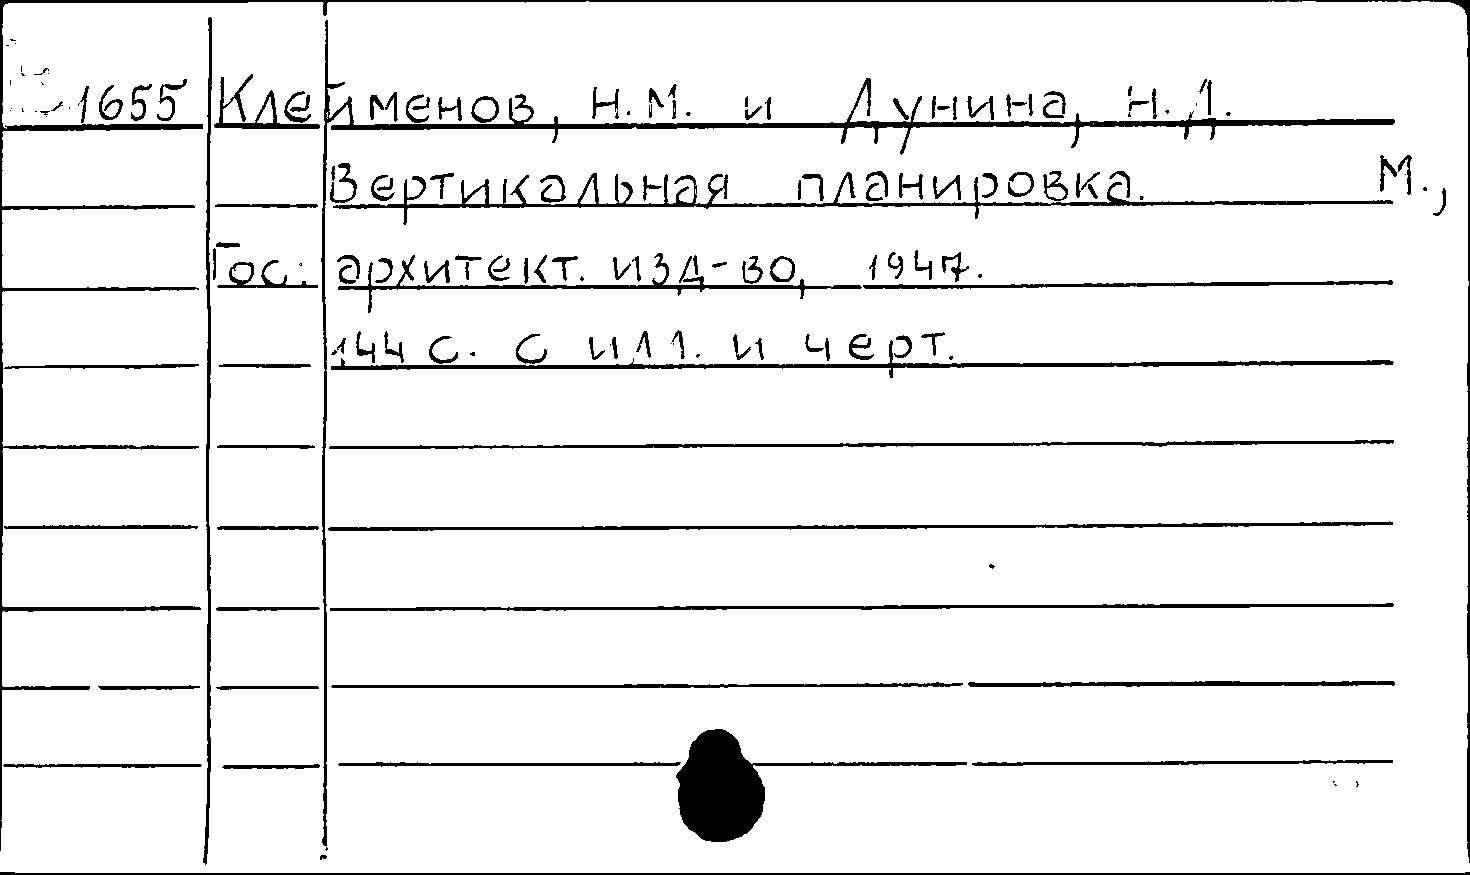 1655 Клейменов, Н.М. и Дунина, Н.Д.
Вертикальная планировка. М.,
Гос. архитект. изд-во, 1947.
144 с. с илл. и черт.